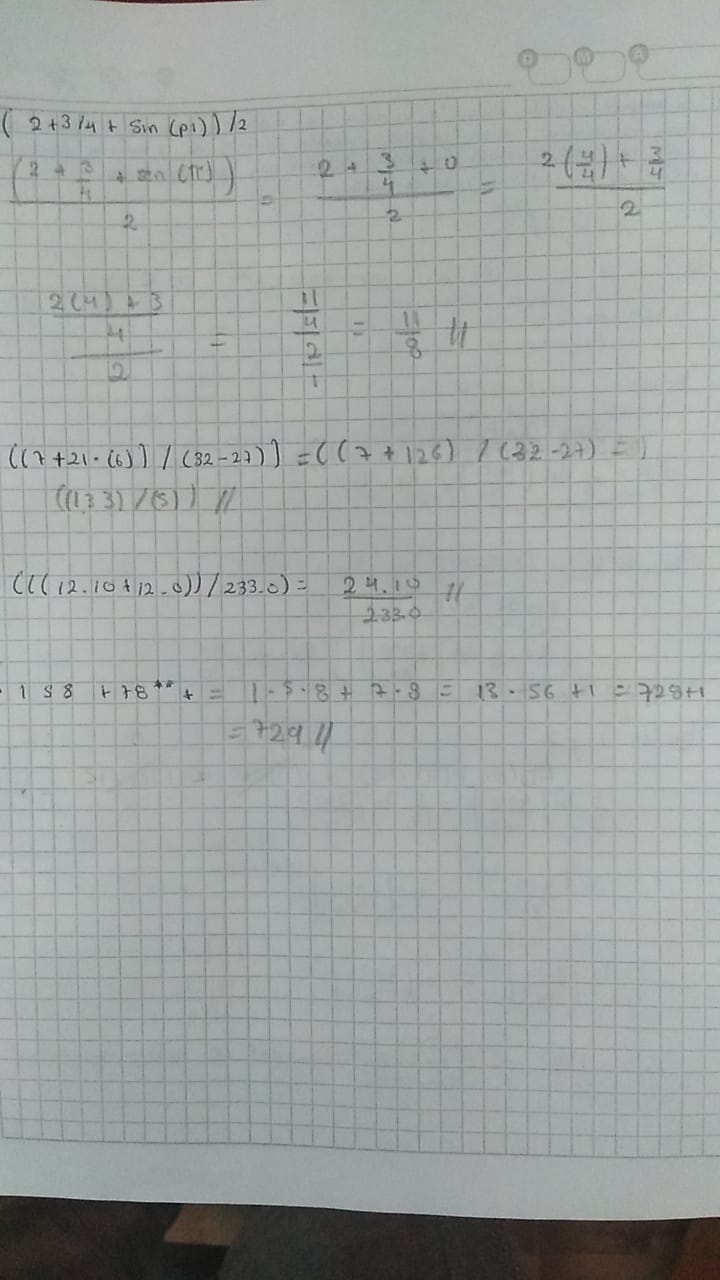 D M A
( 2+3/4 + sin (pi))/2
(2 + 3/4 + sen (π))/2 = (2 + 3/4 + 0)/2 = (2(4/4) + 3/4)/2
((2(4) + 3)/4)/2 = (11/4)/(2/1) = 11/8 //
((7+21·(6)) / (32-27)) = ((7 + 126) / (32-27) = )
((133) / (5)) //
(((12.10+12.0))/233.0) = 24.10/233.0 //
158 + 78 ** + = 1·5·8 + 7·8 = 13·56 +1 = 728+1
= 729 //